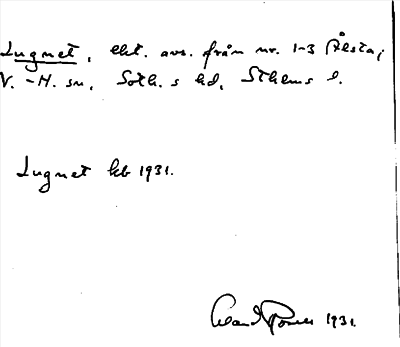 Lugnet, ekt. avs. från nr. 1-3 Ålsta,
V. -H. sn, Soth. s hd, Sthlms l.
Lugnet kb 1931.
1931.